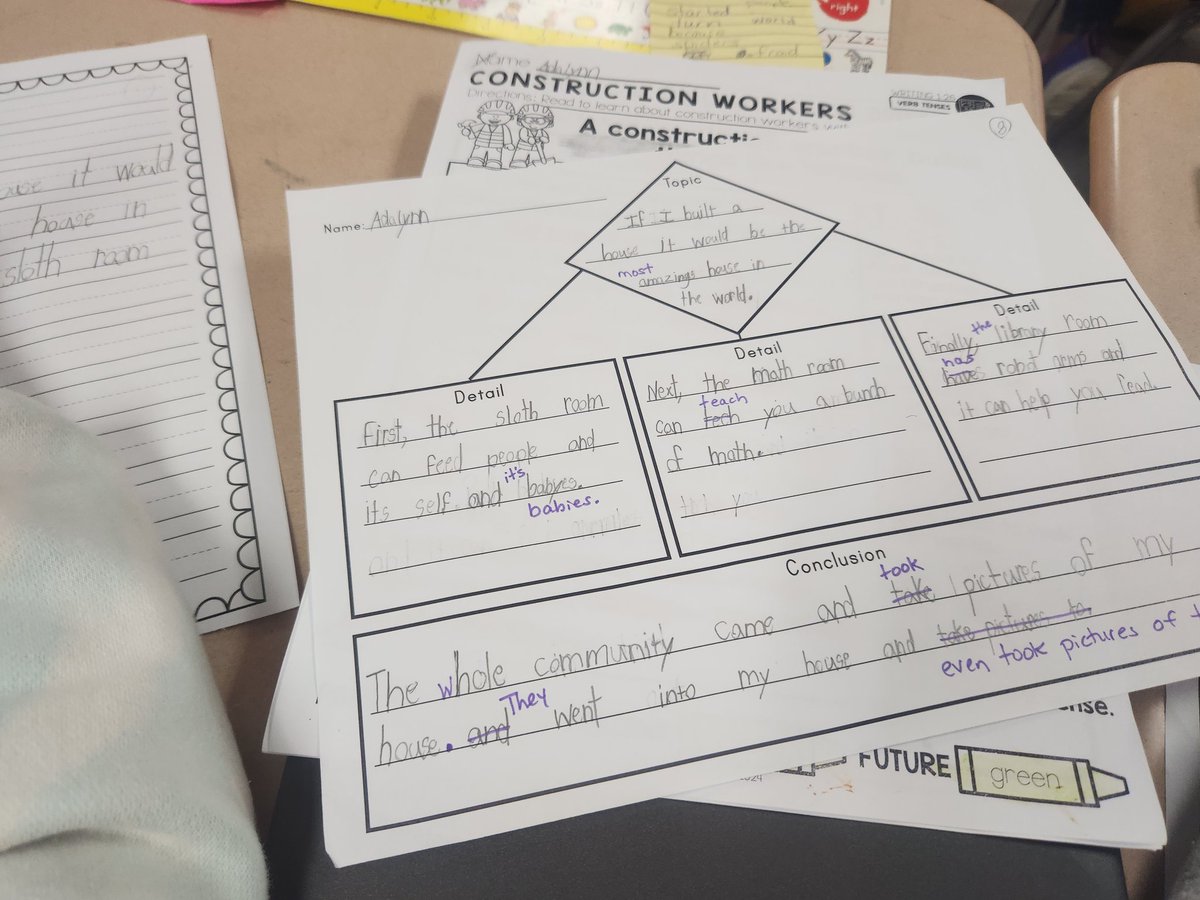 started
turn world
because
afraid
right
Yy Zz
Name Adalynn
CONSTRUCTION WORKERS
Directions: Read to learn about construction workers
WRITING
VERB TENSES
A constructi
ause it would
house in
sloth room
8
Name: Adalynn
Topic
If I built a
house it would be the
most
amazings house in
the world.
Detail
First, the sloth room
can feed people and
its self and it's babyes.
babies.
Detail
Next, the math room
teach
can tech you a bunch
of math.
Detail
Finally, the library room
has
haves robot arms and
it can help you read.
Conclusion
took
The whole community came and take pictures of my
They
house. and went into my house and take pictures to.
even took pictures of t
nse.
FUTURE
green